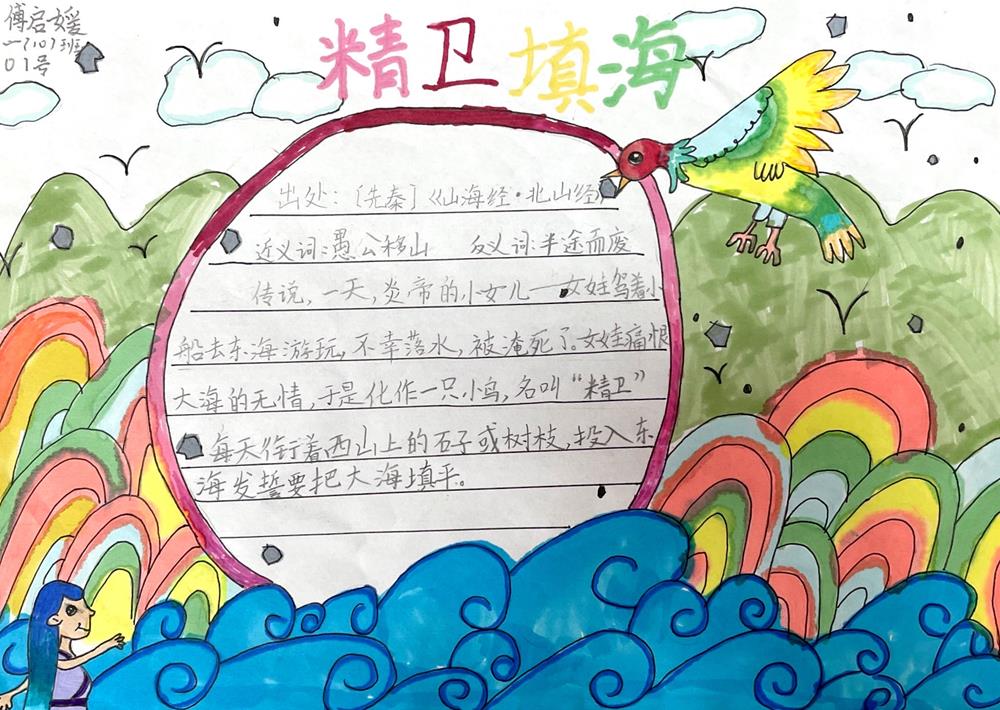 傅启媛
一(10)班
01号
精卫填海
出处：〔先秦〕《山海经·北山经》
近义词：愚公移山 反义词：半途而废
传说，一天，炎帝的小女儿——女娃驾着小
船去东海游玩，不幸落水，被淹死了。女娃痛恨
大海的无情，于是化作一只小鸟，名叫“精卫”
每天衔着西山上的石子或树枝，投入东
海发誓要把大海填平。